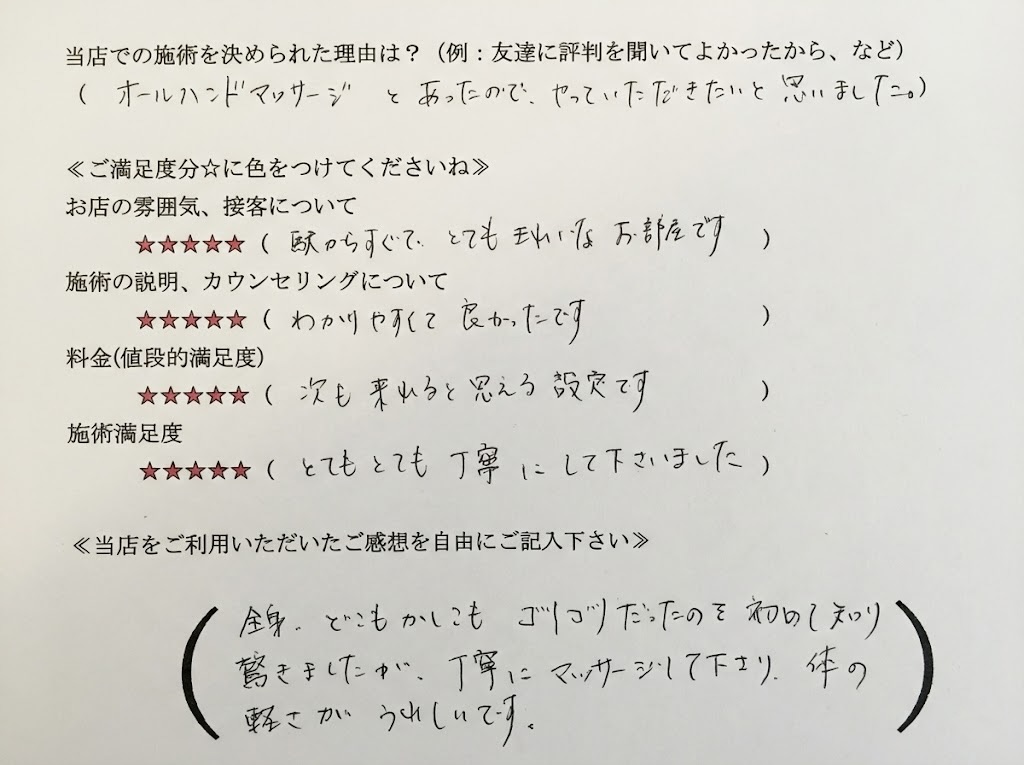 当店での施術を決められた理由は？（例：友達に評判を聞いてよかったから、など）
（ オールハンドマッサージ とあったので、やっていただきたいと思いました。）
≪ご満足度分☆に色をつけてくださいね≫
お店の雰囲気、接客について
★★★★★（ 駅からすぐで、とてもきれいなお部屋です ）
施術の説明、カウンセリングについて
★★★★★（ わかりやすくて 良かったです ）
料金(値段的満足度)
★★★★★（ 次も来れると思える設定です ）
施術満足度
★★★★★（ とてもとても丁寧にして下さいました ）
≪当店をご利用いただいたご感想を自由にご記入下さい≫
全身、どこもかしこも ゴリゴリだったのを初めて知り
驚きましたが、丁寧にマッサージして下さり、体の
軽さが うれしいです。